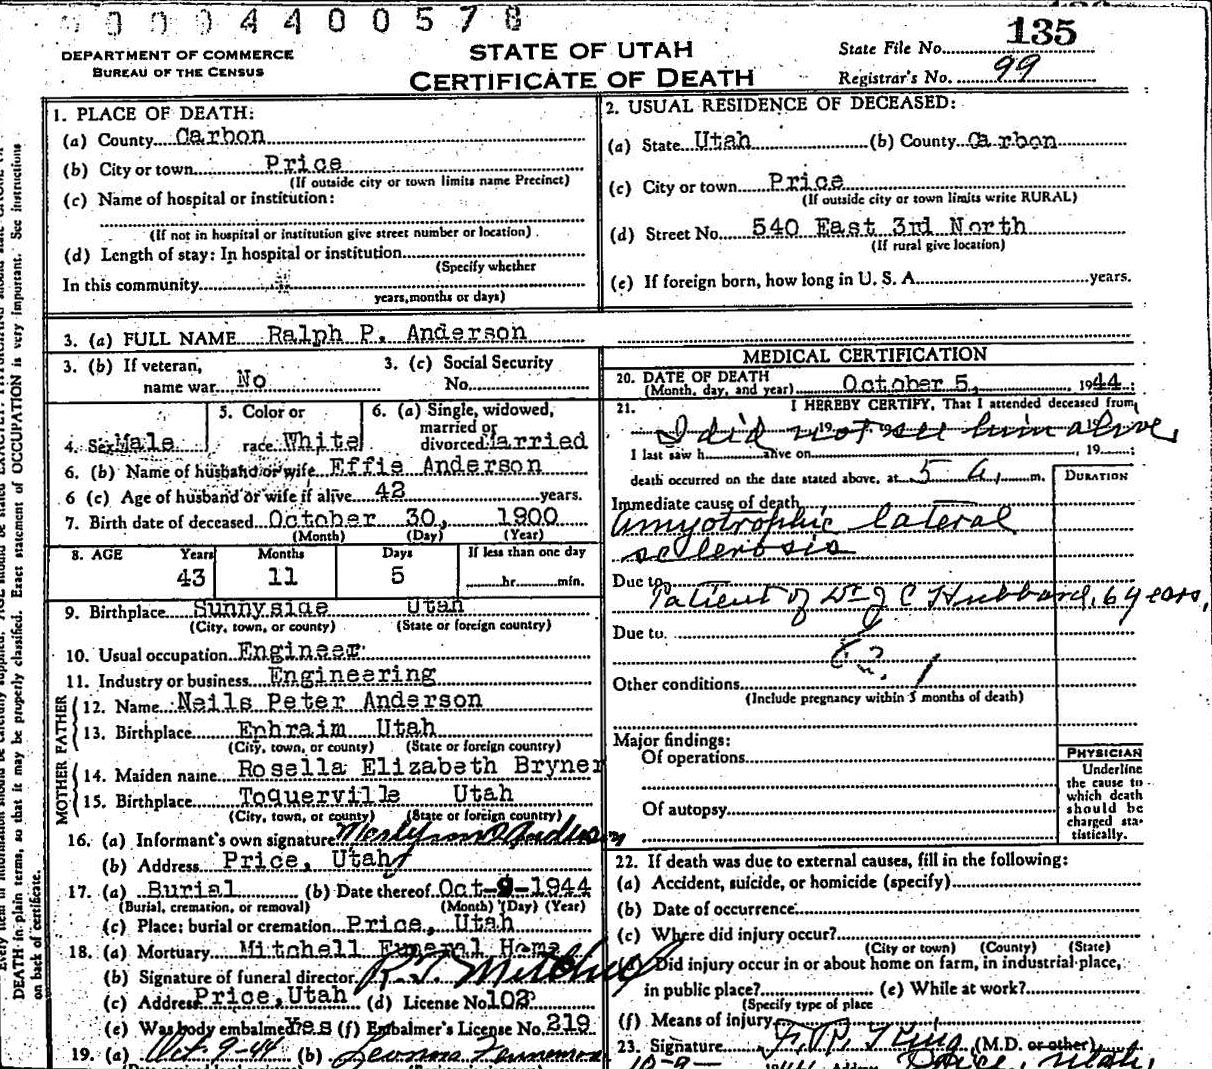 00004400578
135
DEPARTMENT OF COMMERCE
BUREAU OF THE CENSUS
STATE OF UTAH
CERTIFICATE OF DEATH
State File No.
Registrar's No. 99
1. PLACE OF DEATH:
(a) County Carbon
(b) City or town Price
(If outside city or town limits name Precinct)
(c) Name of hospital or institution:
(If not in hospital or institution give street number or location)
(d) Length of stay: In hospital or institution
(Specify whether
In this community
years, months or days)
2. USUAL RESIDENCE OF DECEASED:
(a) State Utah (b) County Carbon
(c) City or town Price
(If outside city or town limits write RURAL)
(d) Street No. 540 East 3rd North
(If rural give location)
(e) If foreign born, how long in U. S. A. years.
3. (a) FULL NAME Ralph P. Anderson
3. (b) If veteran, name war No
3. (c) Social Security No.
4. Sex Male
5. Color or race White
6. (a) Single, widowed, married or divorced Married
6. (b) Name of husband or wife Effie Anderson
6 (c) Age of husband or wife if alive 42 years.
7. Birth date of deceased October 30, 1900
(Month) (Day) (Year)
8. AGE Years Months Days If less than one day
43 11 5 hr. min.
9. Birthplace Sunnyside Utah
(City, town, or county) (State or foreign country)
10. Usual occupation Engineer
11. Industry or business Engineering
FATHER
12. Name Neils Peter Anderson
13. Birthplace Ephraim Utah
(City, town, or county) (State or foreign country)
MOTHER
14. Maiden name Rosella Elizabeth Bryner
15. Birthplace Toquerville Utah
(City, town, or county) (State or foreign country)
16. (a) Informant's own signature Anderson
(b) Address Price, Utah
17. (a) Burial (b) Date thereof Oct-9-1944
(Burial, cremation, or removal) (Month) (Day) (Year)
(c) Place: burial or cremation Price, Utah
18. (a) Mortuary Mitchell Funeral Home
(b) Signature of funeral director R.J. Mitchell
(c) Address Price, Utah (d) License No. 102
(e) Was body embalmed Yes (f) Embalmer's License No. 219
19. (a) Oct 9-44 (b)
MEDICAL CERTIFICATION
20. DATE OF DEATH
(Month, day, and year) October 5, 1944
21. I HEREBY CERTIFY, That I attended deceased from
I did not see him alive
I last saw h alive on , 19
death occurred on the date stated above, at 5 a. m.
DURATION
Immediate cause of death
Amyotrophic lateral
sclerosis
Due to
Patient of Dr J C Hubbard, 6 years,
Due to
Other conditions
(Include pregnancy within 3 months of death)
Major findings:
Of operations
Of autopsy
PHYSICIAN
Underline
the cause to
which death
should be
charged sta-
tistically.
22. If death was due to external causes, fill in the following:
(a) Accident, suicide, or homicide (specify)
(b) Date of occurrence
(c) Where did injury occur?
(City or town) (County) (State)
Did injury occur in or about home on farm, in industrial place,
in public place? (e) While at work?
(Specify type of place
(f) Means of injury
23. Signature F. R. King (M.D. or other)
10-9- Address Price, Utah
Exact statement of OCCUPATION is very important. See instructions
DEATH in plain terms, so that it may be properly classified.
on back of certificate.